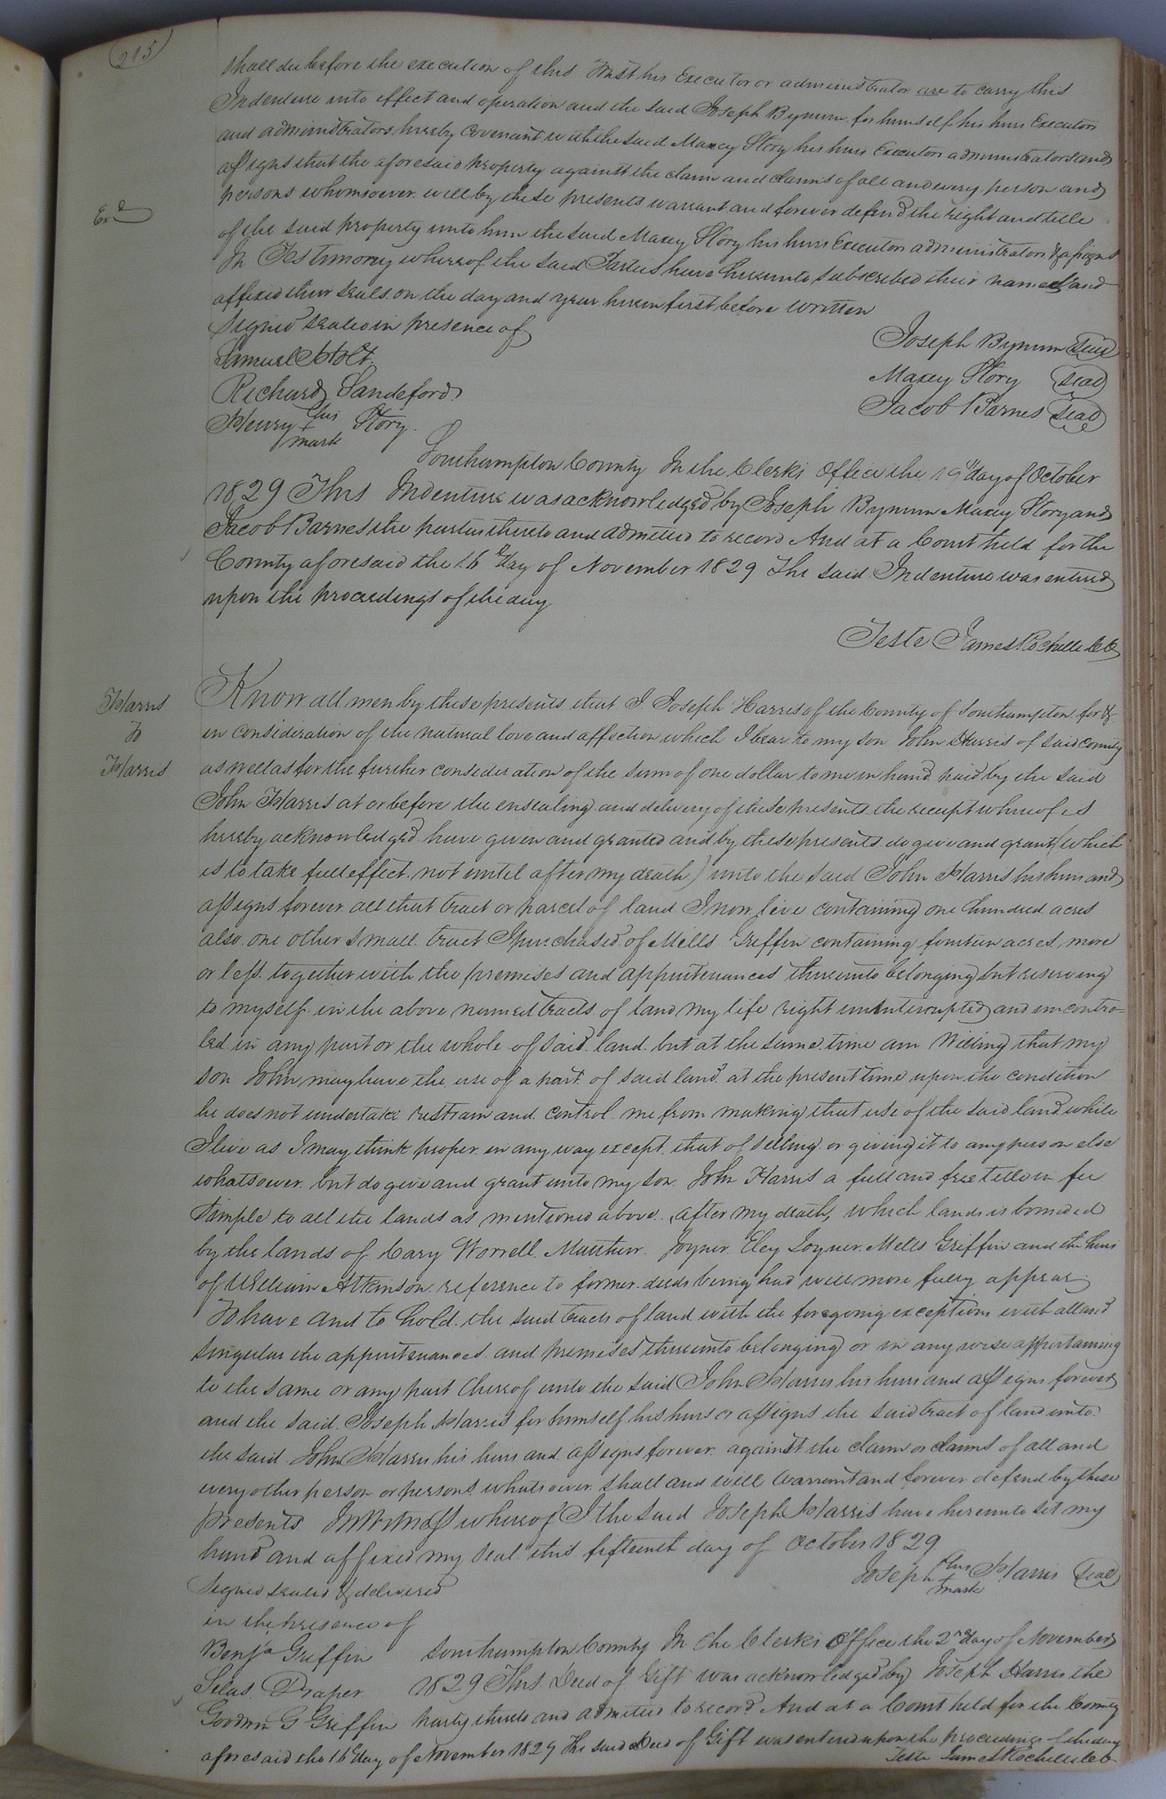 215
shall die before the execution of this Trust his Executor or administrator are to carry this
Indenture into effect and operation and the said Joseph Bynum for himself his heirs Executors
and administrators hereby Covenant with the said Maxey Story his heirs Executors administrators and
assigns that the aforesaid property against the claim and claims of all and every person and
persons whomsoever will by these presents warrant and forever defend the right and title
Exd
of the said property unto him the said Maxey Story his heirs Executors administrators & assigns
In Testimony whereof the said Parties have hereunto subscribed their names and
affixed their seals on the day and year herein first before written
Signed sealed in presence of
Joseph Bynum Seal
Samuel Holt
Maxey Story Seal
Richard Sandeford
Jacob Barnes Seal
Henry his + mark Story
Southampton County In the Clerks Office the 19th day of October
1829 This Indenture was acknowledged by Joseph Bynum Maxey Story and
Jacob Barnes the parties thereto and admitted to record And at a Court held for the
County aforesaid the 16th day of November 1829 The said Indenture was entered
upon the proceedings of the day
Teste James Rochelle CC
Harris
to
Harris
Know all men by these presents that I Joseph Harris of the County of Southampton for &
in consideration of the natural love and affection which I bear to my son John Harris of said county
as well as for the further consideration of the sum of one dollar to me in hand paid by the said
John Harris at or before the ensealing and delivery of these presents the receipt whereof is
hereby acknowledged have given and granted and by these presents do give and grant (which
is to take full effect not until after my death) unto the said John Harris his heirs and
assigns forever all that tract or parcel of land I now live containing one hundred acres
also one other small tract I purchased of Mills Griffin containing fourteen acres more
or less together with the premises and appurtenances thereunto belonging but reserving
to myself in the above named tracts of land my life right uninterrupted and uncontro-
led in any part or the whole of said land but at the same time am Willing that my
son John may have the use of a part of said land at the present time upon the condition
he does not undertake restrain and control me from making that use of the said land while
I live as I may think proper in any way except that of selling or giving it to any person else
whatsoever but do give and grant unto my son John Harris a full and free title in fee
Simple to all the lands as mentioned above after my death, which lands is bounded
by the lands of Cary Worrell Matthew Joyner Eley Joyner Mells Griffin and the heirs
of William Atkinson reference to former deeds being had will more fully appear
To have and to hold the said tracts of land with the foregoing exceptions with all and
singular the appurtenances and premises thereunto belonging or in any wise appertaining
to the same or any part thereof unto the said John Harris his heirs and assigns forever
and the said Joseph Harris for himself his heirs or assigns the said tract of land unto
the said John Harris his heirs and assigns forever against the claim or claims of all and
every other person or persons whatsoever shall and will Warrant and forever defend by these
presents In Witness whereof I the said Joseph Harris have hereunto set my
hand and affixed my seal this fifteenth day of October 1829
Joseph his + mark Harris Seal
Signed sealed & delivered
in the presence of
Benja Griffin
Silas Draper
Goodwin G Griffin
Southampton County In the Clerks Office the 2nd day of November
1829 This Deed of Gift was acknowledged by Joseph Harris the
party thereto and admitted to record And at a Court held for the County
aforesaid the 16th day of November 1829 The said Deed of Gift was entered upon the proceedings of the day
Teste James Rochelle CC